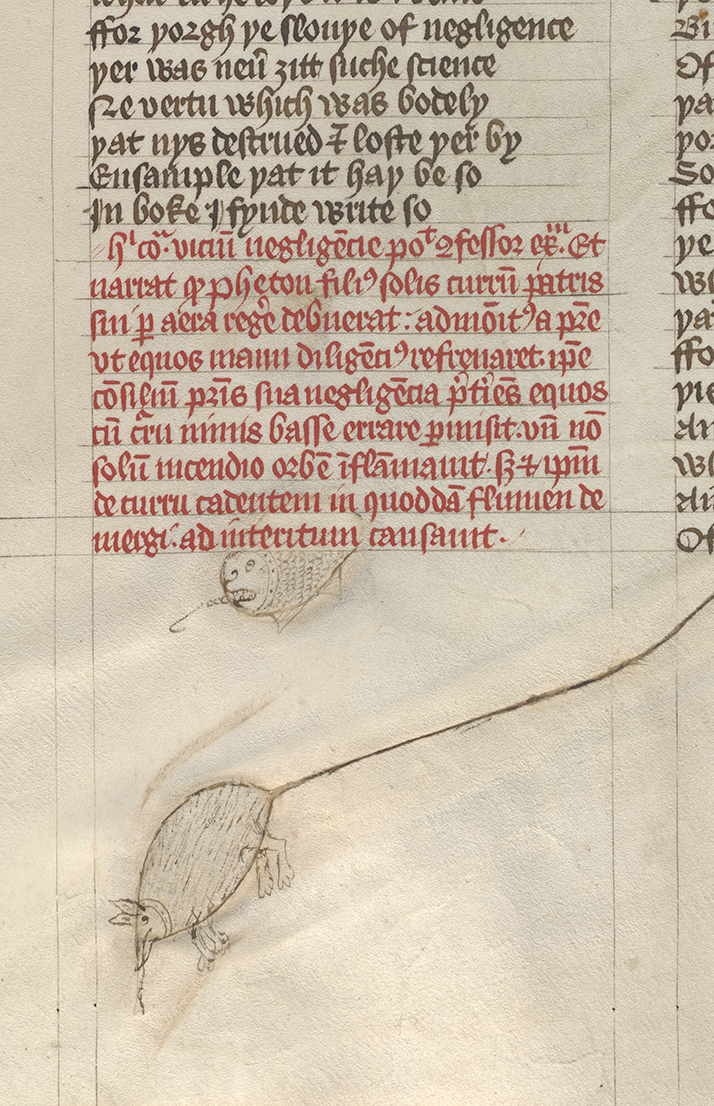 ffor yorgh ye slouye of negligence
yer was neu̅ ȝitt suche science
Ne vertu which was bodely
yat nys destrued ⁊ loste yer by
Ensample yat it hay be so
In boke I fynde write so
hͥ co͛ viciu̅ neglige̅cie po᷒ꝯfessor ex̅ᵐ. Et
narrat qꝫ Pheton filiꝰ solis curru̅ patris
sui ꝑ aera reg͛e debuerat : admo̅itꝰ a pr̅e
vt equos manu dilige̅ciꝰ refrenaret. ip̅e
co̅siliu̅ pr̅is sua neglige̅cia p̄t͛ie̅s equos
cu̅ cr͛ru nimis basse errare ꝑmisit . vn̅ no̅
solu̅ incendio orbe̅ i̅fla̅mauit . sꝫ ⁊ ip̅m
de curru cadentem in quodda̅ flumen de
mergi . ad interitum causauit .
Bi
Of
ya
yo
So
ffo
ye
ya
ffo
yie
Of